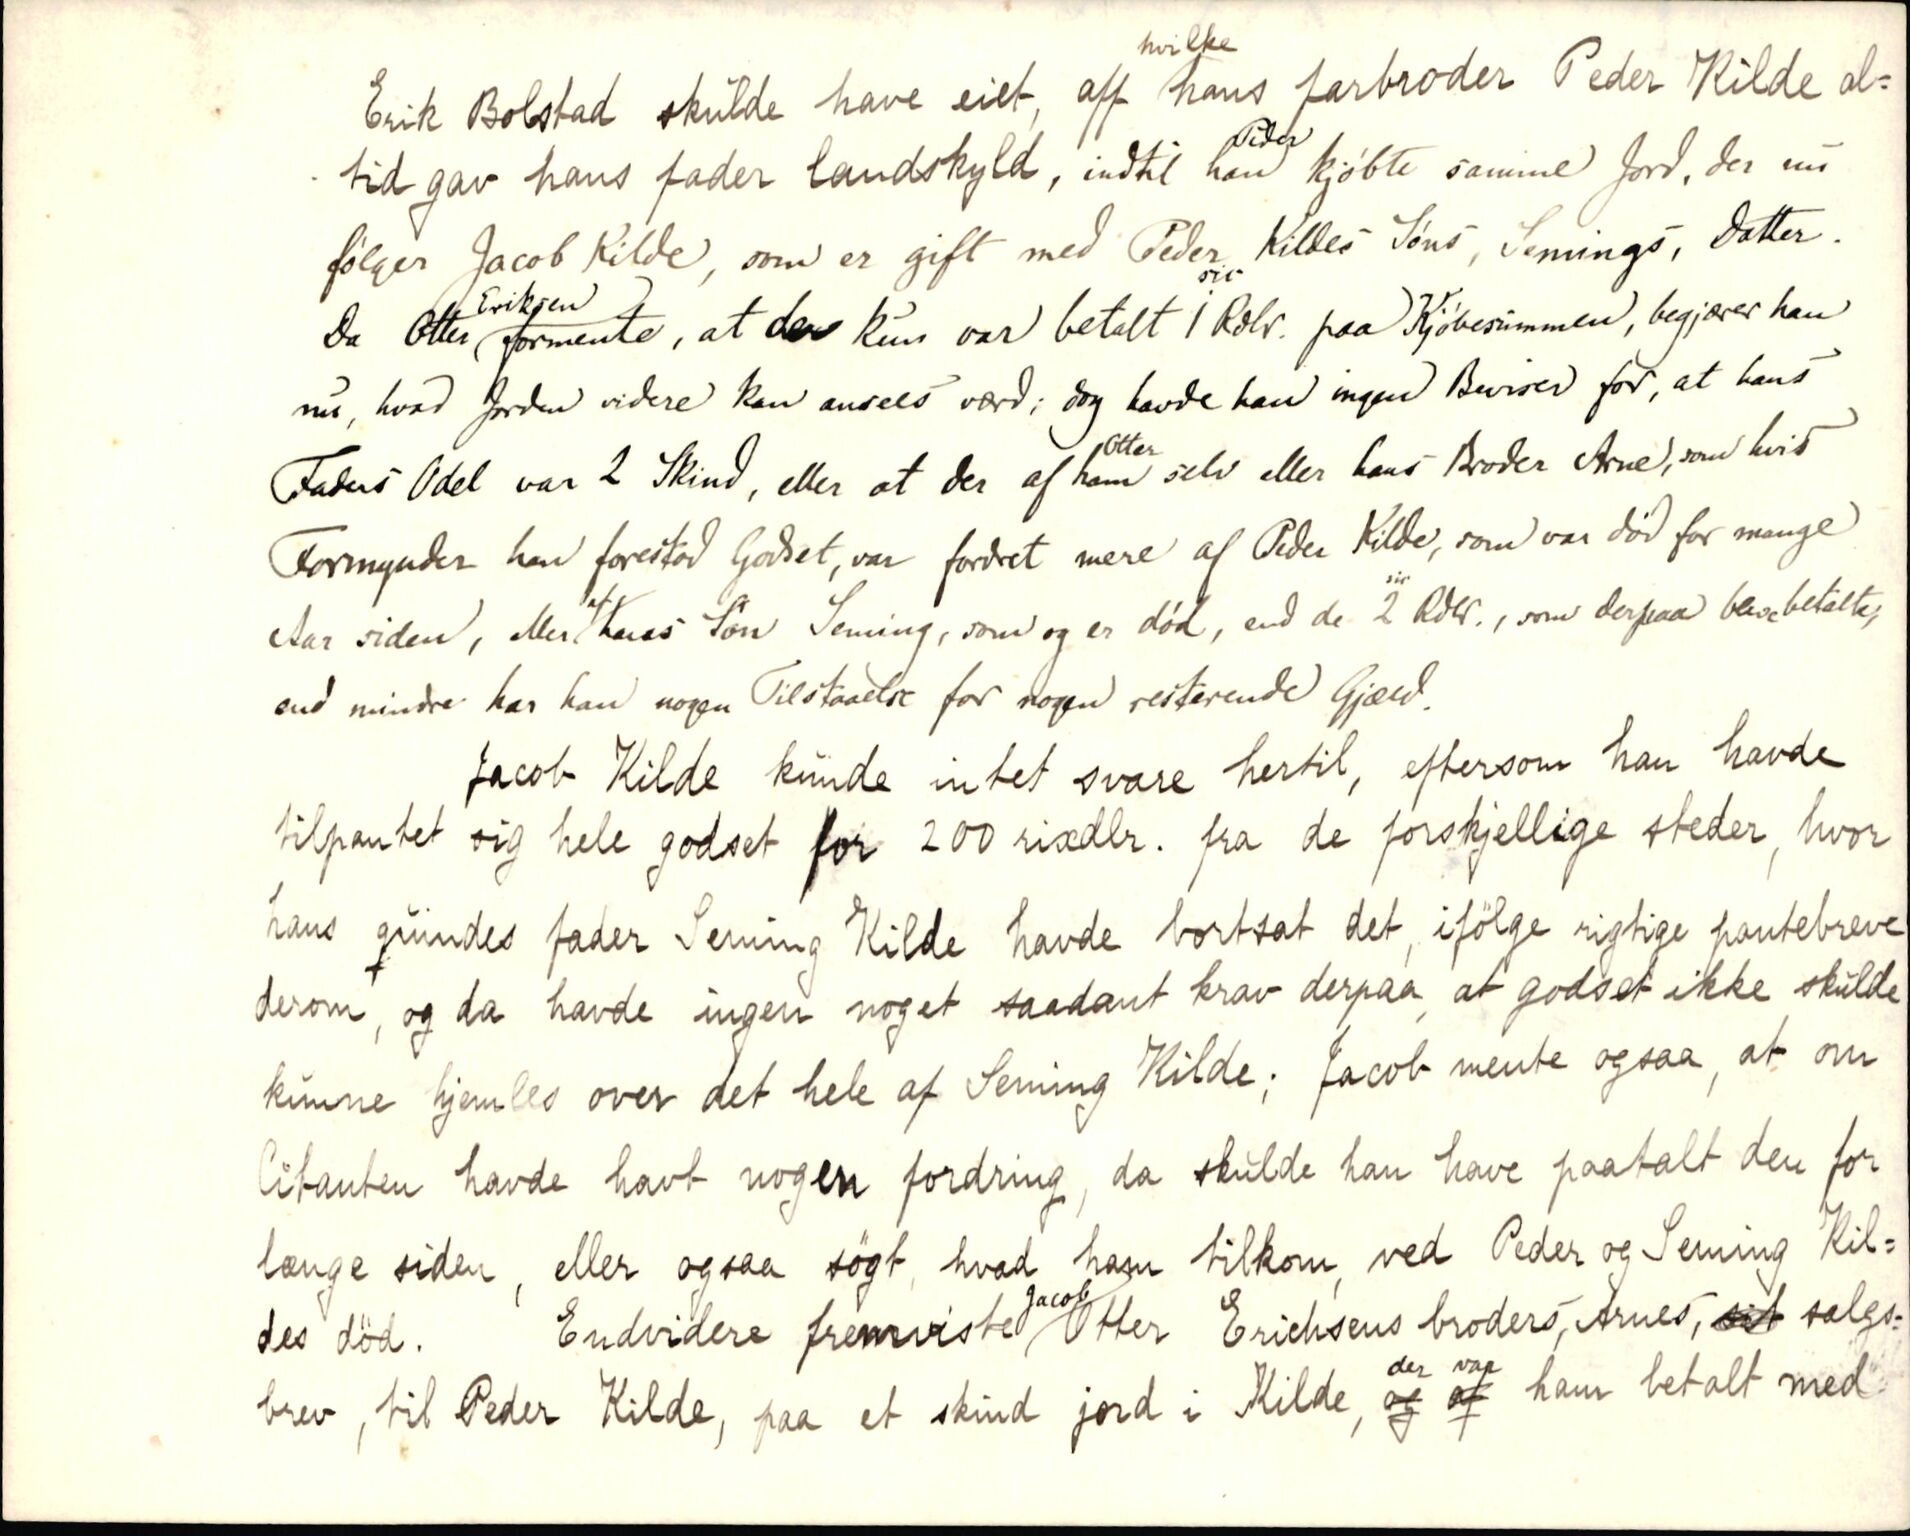 hvilke
Erik Bolstad skulde have eiet, aff hans farbroder Peder Kilde al=
Peder
tid gav hans fader landskyld, indtil han kjöbte samme Jord, der nu
fölger Jacob Kilde, som er gift med Peder Kildes Söns, Semings, Datter.
Eriksen sic
Da Otter formente, at der kun var betalt 1 Rdlr. paa Kjöbesummen, begjærer han
nu, hvad Jorden videre kan ansees værd; dog havde han ingen Beviser for, at hans
Otter
Faders Odel var 2 Skind, eller at der af ham selv eller hans Broder Arne, som hvis
Formynder han forestod Godset, var fordret mere af Peder Kilde, som var död for mange
af sic
Aar siden, eller hans Sön Seming, som og er död, end de 2 Rdlr., som derpaa blev betalte,
end mindre har han nogen Tilstaaelse for nogen resterende Gjæld.
Jacob Kilde kunde intet svare hertil, eftersom han havde
tilpantet sig hele godset for 200 rixdlr. fra de forskjellige steder, hvor
hans quindes fader Seming Kilde havde bortsat det, ifölge rigtige pantebreve
derom, og da havde ingen noget saadant krav derpaa, at godset ikke skulde
kunne hjemles over det hele af Seming Kilde; Jacob mente ogsaa, at om
Citanten havde havt nogen fordring, da skulde han have paatalt den for
længe siden, eller ogsaa sögt, hvad ham tilkom, ved Peder og Seming Kil=
Jacob
des död. Endvidere fremviste Otter Erichsens broders, Arnes, sit salgs=
der var
brev, til Peder Kilde, paa et skind jord i Kilde, og af ham betalt med